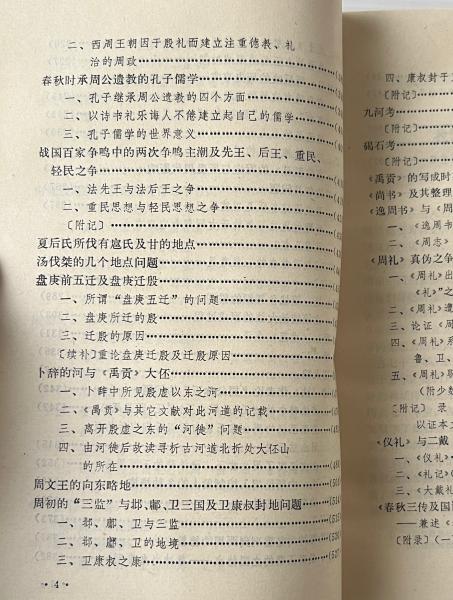 二、西周王朝因于殷礼而建立注重德教、礼
治的周政
春秋时承周公遗教的孔子儒学
一、孔子继承周公遗教的四个方面
二、以诗书礼乐诲人不倦建立起自己的儒学
三、孔子儒学的世界意义
战国百家争鸣中的两次争鸣主潮及先王、后王、重民、
轻民之争
一、法先王与法后王之争
二、重民思想与轻民思想之争
〔附记〕
夏后氏所伐有扈氏及甘的地点
汤伐桀的几个地点问题
盘庚前五迁及盘庚迁殷
一、所谓“盘庚五迁”的问题
二、盘庚所迁的殷
三、迁殷的原因
〔续补〕重论盘庚迁殷及迁殷原因
卜辞的河与《禹贡》大伾
一、卜辞中所见殷虚以东之河
二、《禹贡》与其它文献对此河道的记载
三、离开殷虚之东的“河徙”问题
四、由河徙后故渎寻析古河道北折处大伾山
的所在
周文王的向东略地
周初的“三监”与邶、鄘、卫三国及卫康叔封地问题
一、邶、鄘、卫与三监
二、邶、鄘、卫的地境
三、卫康叔之康
·4·
四、康叔封于
〔附记〕
九河考
〔附记〕
碣石考
〔附记〕
《禹贡》的写成时
《尚书》及其整理
《逸周书》与《周
一、《逸周书
二、《周志》
《周礼》真伪之争
一、《周礼》出
《礼》”之
二、《周礼》遭
三、论证《周
四、《周礼》
鲁、卫、
五、《周礼》
（附少数
〔附记〕 录
以证本文
《仪礼》与二戴
一、《仪礼》
二、《礼记》
三、《大戴礼
《春秋三传及国
——兼述《
〔附录〕（一